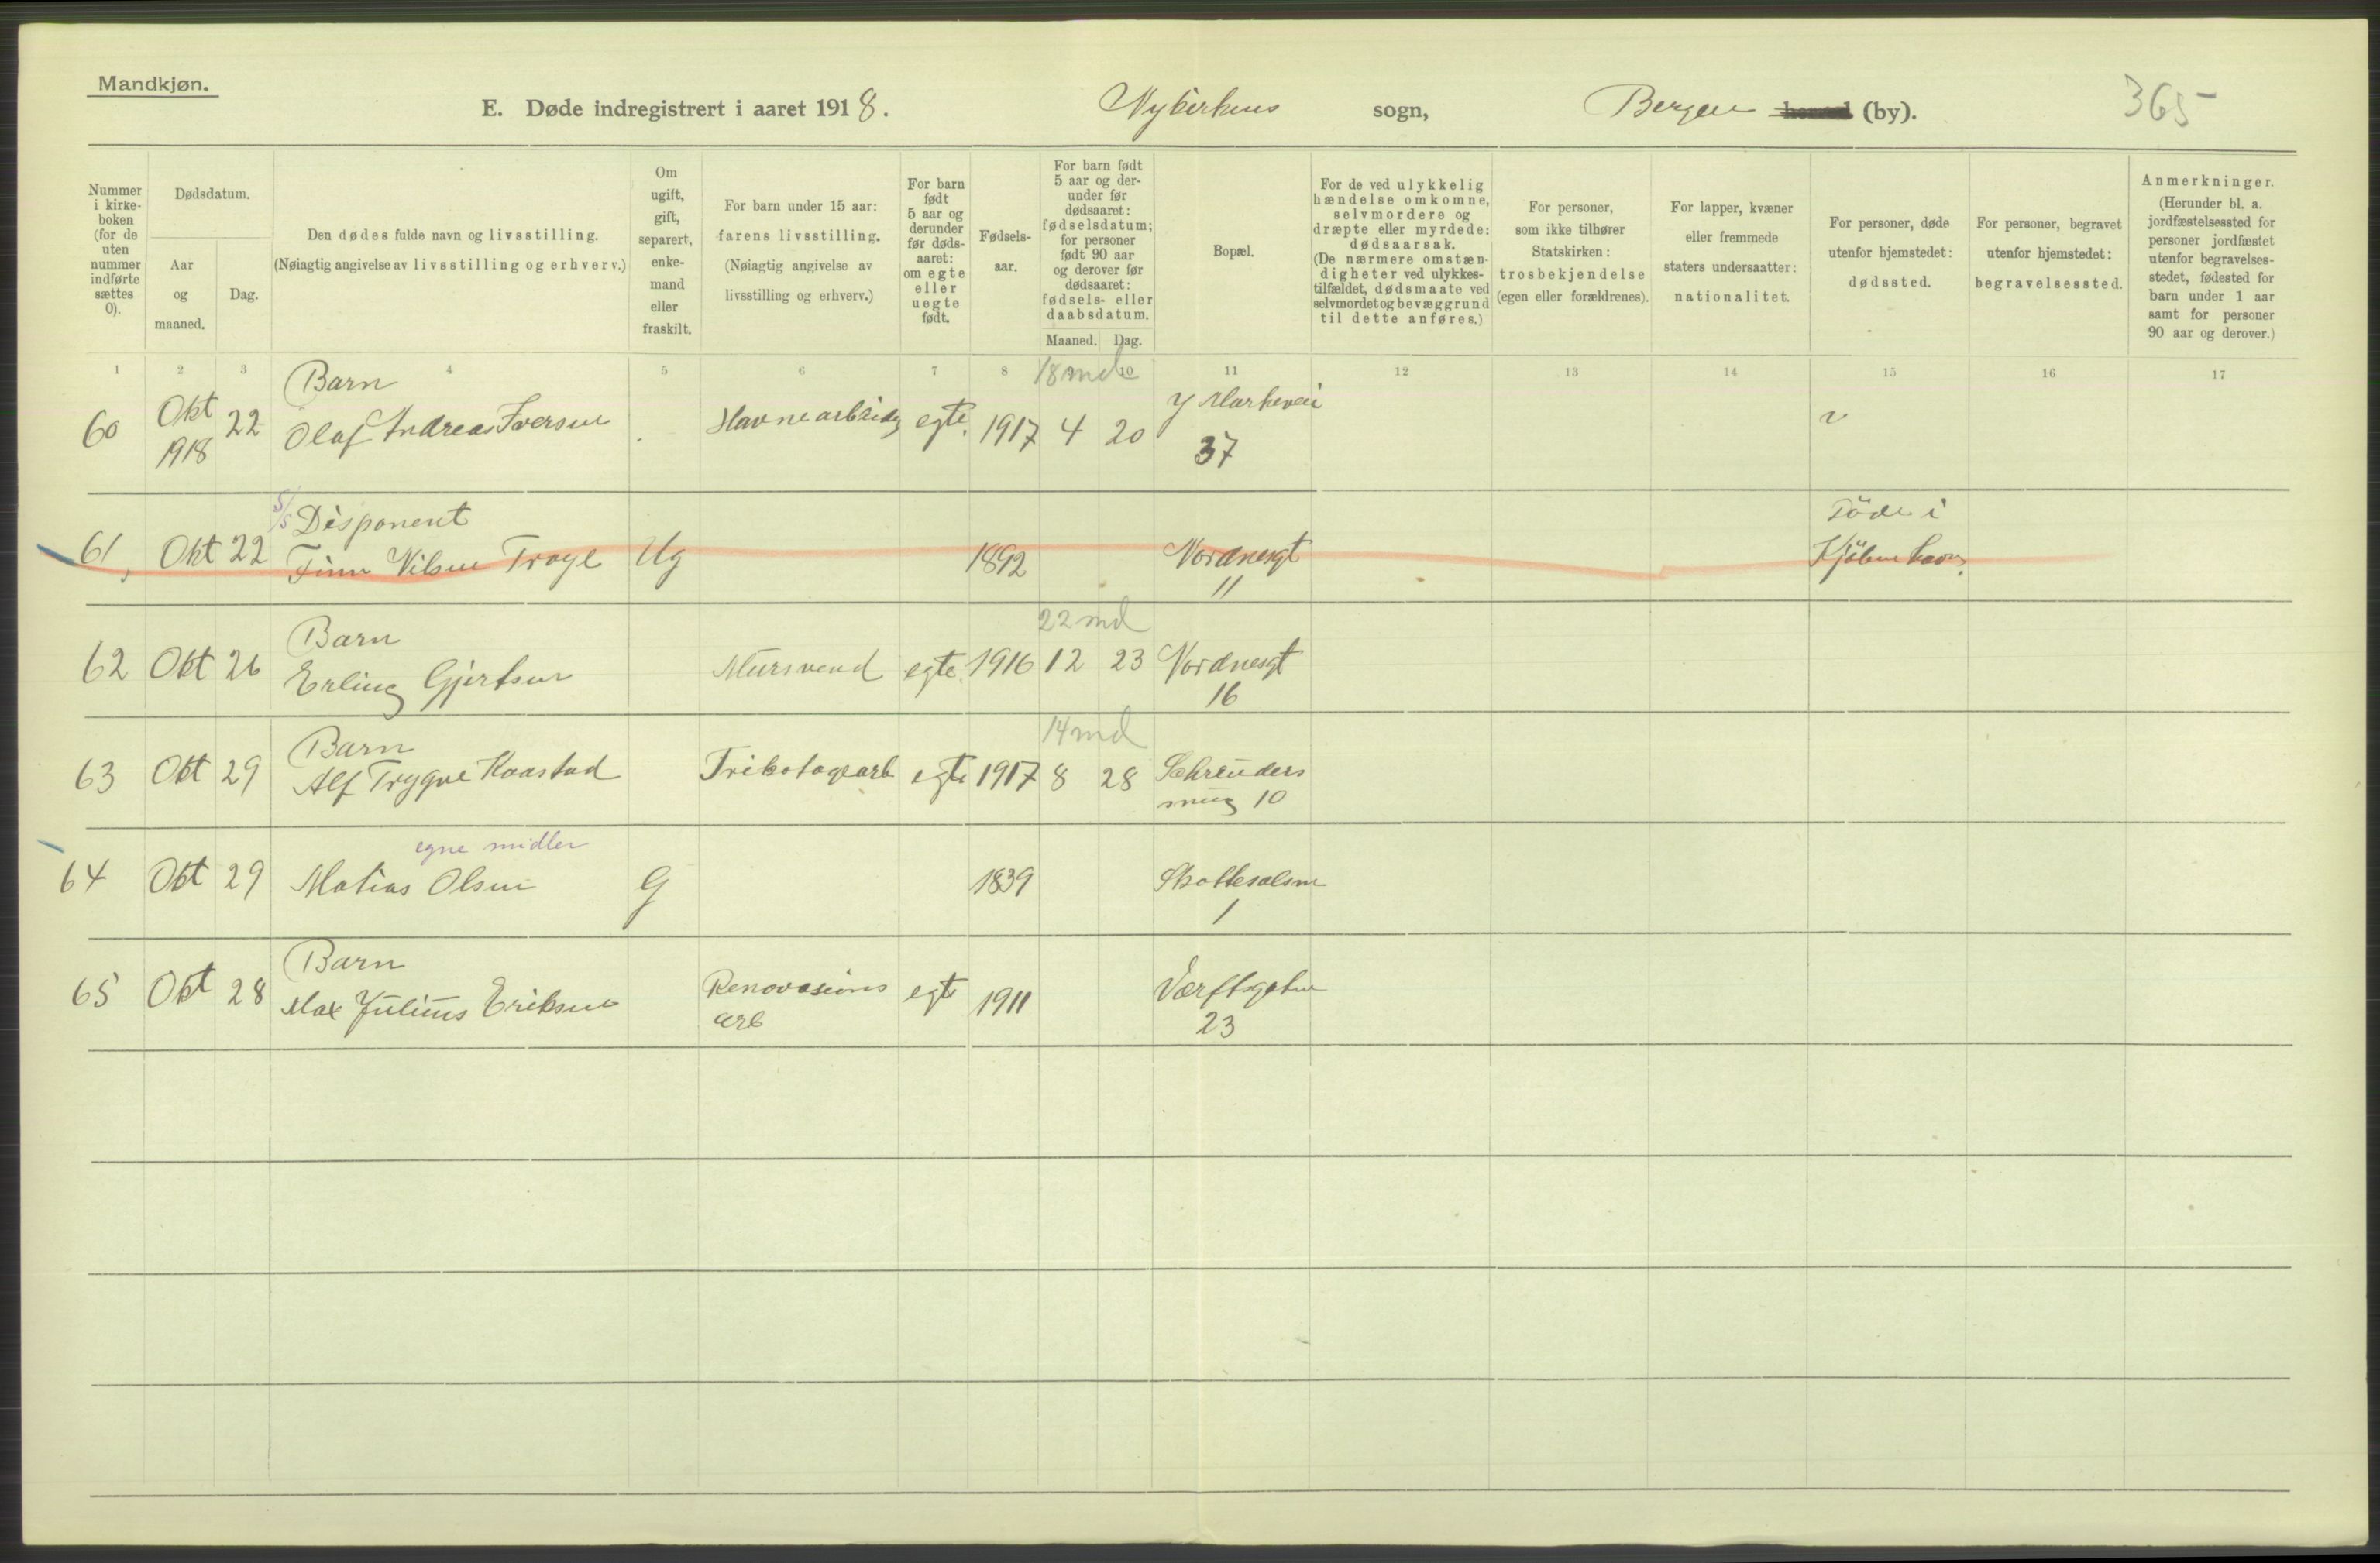 Mandkjøn.
E. Døde indregistrert i aaret 1918. Nykirkens sogn, Bergen herred (by). 365
Nummer i kirke-boken (for de uten nummer indførte sættes 0).
Dødsdatum.
Aar og maaned.
Dag.
Den dødes fulde navn og livsstilling.
(Nøiagtig angivelse av livsstilling og erhverv.)
Om ugift, gift, separert, enke-mand eller fraskilt.
For barn under 15 aar:
farens livsstilling.
(Nøiagtig angivelse av
livsstilling og erhverv.)
For barn født 5 aar og derunder før døds-aaret: om egte eller uegte født.
Fødsels-aar.
For barn født 5 aar og der-under før dødsaaret: fødselsdatum; for personer født 90 aar og derover før dødsaaret: fødsels- eller daabsdatum.
Maaned. Dag.
Bopæl.
For de ved ulykkelig hændelse omkomne, selvmordere og dræpte eller myrdede: dødsaarsak. (De nærmere omstæn-digheter ved ulykkes-tilfældet, dødsmaate ved selvmordet og bevæggrund til dette anføres.)
For personer, som ikke tilhører Statskirken: trosbekjendelse (egen eller forældrenes).
For lapper, kvæner eller fremmede staters undersaatter: nationalitet.
For personer, døde utenfor hjemstedet: dødssted.
For personer, begravet utenfor hjemstedet: begravelsessted.
Anmerkninger. (Herunder bl. a. jordfæstelsessted for personer jordfæstet utenfor begravelses-stedet, fødested for barn under 1 aar samt for personer 90 aar og derover.)
1 2 3 4 5 6 7 8 9 10 11 12 13 14 15 16 17
Barn 18 md
60 Okt 1918 22 Olaf Andreas Iversen Havnearbeider egte 1917 4 20 Y Markevei 37
5/5 Disponent Döde i
61, Okt 22 Finn Nilsen Troye Ug 1892 Nordnesgt 11 Kjöbenhavn.
Barn 22 md
62 Okt 26 Erling Gjertsen Mursvend egte 1916 12 23 Nordnesgt 16
Barn 14 md
63 Okt 29 Alf Trygve Kaastad Trikotagearb egte 1917 8 28 Schreuders smug 10
egne midler
64 Okt 29 Matias Olsen G 1839 1
Barn
65 Okt 28 Max Julius Eriksen Renovasions arb egte 1911 Værftsgaten 23